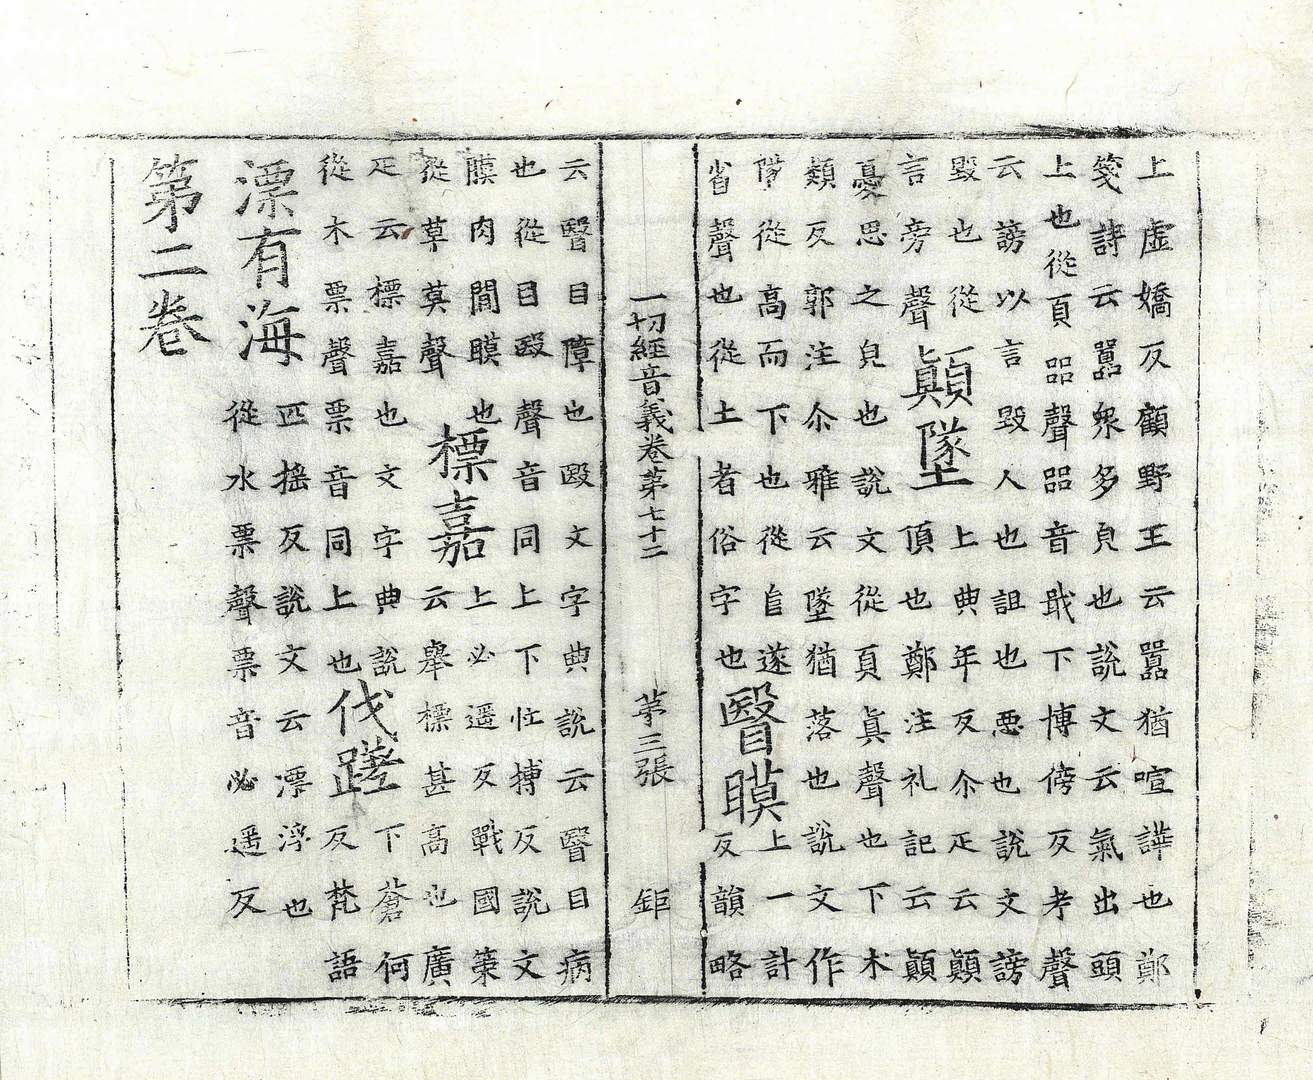 上虛嬌反顧野王云嚻猶喧譁也鄭
箋詩云嚻衆多皃也說文云氣出頭
上也從頁㗊聲㗊音戢下博傍反考聲
云謗以言毀人也詛也惡也說文謗
毀也從
言旁聲
顛墜
上典年反尒疋云顛
頂也鄭注礼記云顛
憂思之皃也說文從頁眞聲也下木
類反郭注尒雅云墜猶落也說文作
隊從高而下也從𨸏遂
省聲也從土者俗字也
瞖瞙
上一計
反韻略
一切經音義卷苐七十二 苐三張 鉅
云瞖目障也殹文字典說云瞖目病
也從目殹聲音同上下忙搏反說文
膜肉間瞙也
從草莫聲
標嘉
上必遥反戰國策
云舉標甚高也廣
疋云標嘉也文字典說
從木票聲票音同上也
伐蹉
下蒼何
反梵語
漂有海
匹摇反說文云漂浮也
從水票聲票音必遥反
第二卷